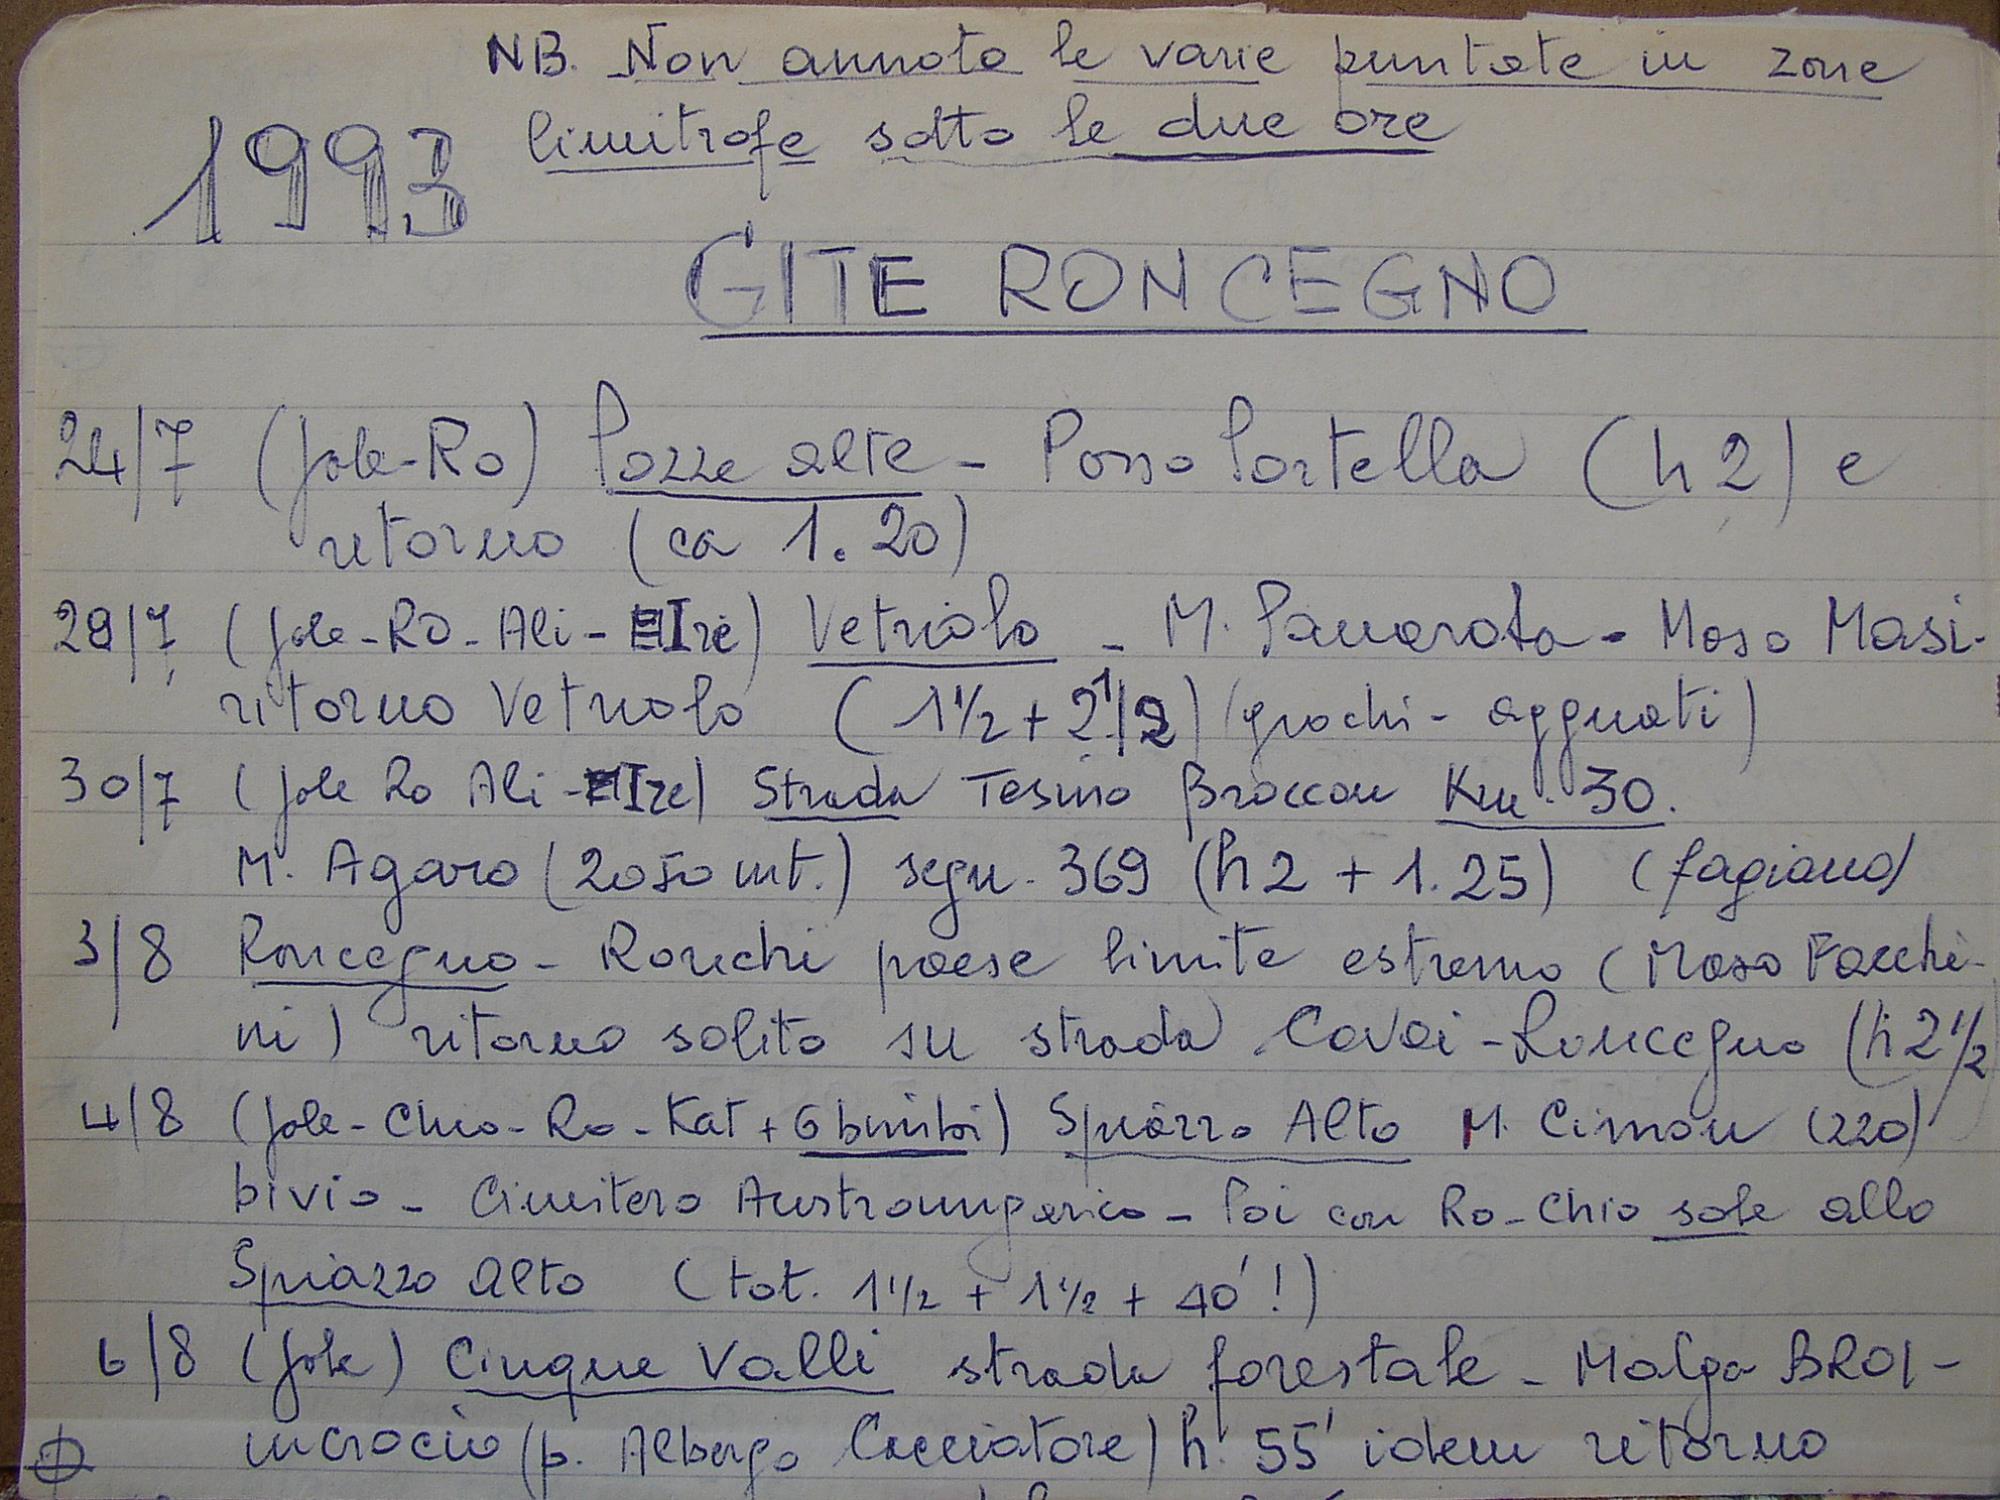 NB. Non annoto le varie puntate in zone
limitrofe sotto le due ore
1993
GITE RONCEGNO
24/7 (Jole-Ro) Pozze alte - Passo Portella (h 2) e
ritorno (ca 1.20)
29/7 (Jole-Ro-Ali-Ire) Vetriolo - M. Panarota - Maso Masi-
ritorno Vetriolo (1½ + 2½) (giochi - agguati)
30/7 (Jole Ro Ali-Ire) Strada Tesino Broccon Km. 30.
M. Agaro (2050 mt.) segn. 369 (h 2 + 1.25) (fagiano)
3/8 Roncegno - Ronchi paese limite estremo (Maso Facchi-
ni) ritorno solito su strada Cavai - Roncegno (h 2½
4/8 (Jole-Chio-Ro-Kat + 6 bimbi) Spiazzo Alto M. Cimon (220)
bivio - Cimitero Austroungarico - Poi con Ro-Chio sole allo
Spiazzo Alto (tot. 1½ + 1½ + 40'!)
6/8 (Jole) Cinque Valli strada forestale - Malga BROI -
incrocio (p. Albergo Cacciatore) h. 55' idem ritorno